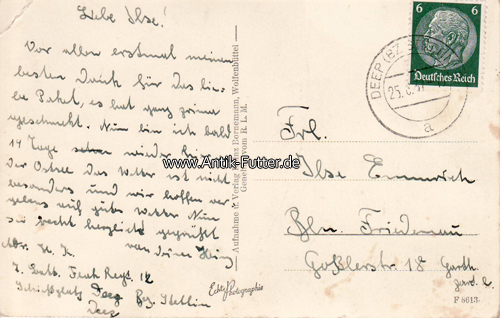 Liebe Ilse!
Vor allen erstmal meinen
besten Dank für das lie-
be Paket, es hat ganz prima
geschmekt. Nun bin ich bald
14 Tage schon wieder
der Ostsee das Wetter ist nicht
besonders und wir hoffen ver-
gebens auf gutes Wetter. Nun
sei recht herzlich gegrüßt
von deinen Heinz
Abs. H. K.
7. Batt. Regt. 12
Schießplatz Deep Bez. Stettin
Deep
Aufnahme & Verlag Franz Bornemann, Wolfenbüttel
vom R. L. M.
Echte Photographie
6 6
Deutsches Reich
DEEP (BZ.
25. 8. 37
a
Frl.
Ilse Emmrich
Bln. Friedenau
Goßlerstr 18 Garth.
F 8613
www.Antik-Futter.de